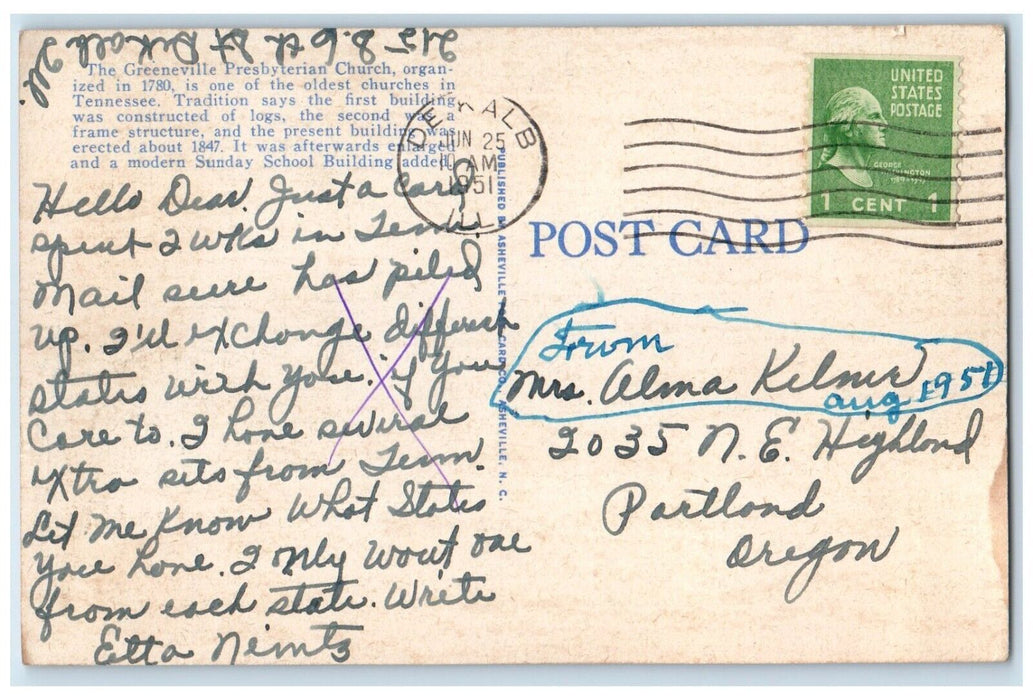 215 S. 6th St DeKalb Ill.
The Greeneville Presbyterian Church, organ-
ized in 1780, is one of the oldest churches in
Tennessee. Tradition says the first building
was constructed of logs, the second was a
frame structure, and the present building was
erected about 1847. It was afterwards enlarged
and a modern Sunday School Building added.
Hello Dear. Just a Card
spent 2 wks in Tenn.
Mail sure has piled
up. I'll exchange different
States with you. if you
Care to. I have several
Xtra sets from Tenn.
Let Me Know What States
You have. I only want one
from each state. Write
Etta Nimtz
PUBLISHED BY ASHEVILLE POST CARD CO., ASHEVILLE, N. C.
DE KALB
JUN 25
10 AM
1951
ILL.
UNITED
STATES
POSTAGE
GEORGE
WASHINGTON
1789-1797
1 CENT 1
POST CARD
From
Mrs. Alma Kilmer
aug 1951
2035 N. E. Highland
Portland
Oregon